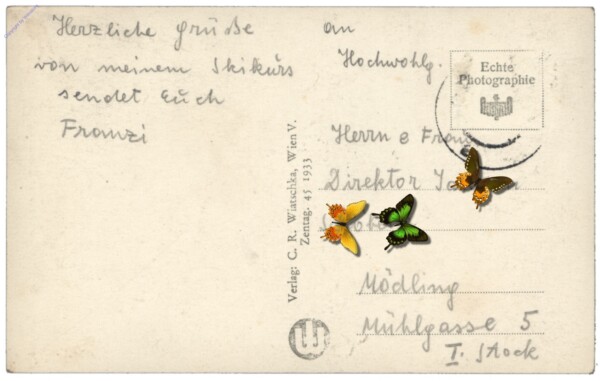 Herzliche Grüße
von meinem Skikurs
sendet Euch
Franzi
an
Hochwohlg.
Herrn e Frau
Direktor
Mödling
Mühlgasse 5
I. Stock
Echte
Photographie
Verlag: C. R. Wiatschka, Wien V.
Zentag. 45 1933